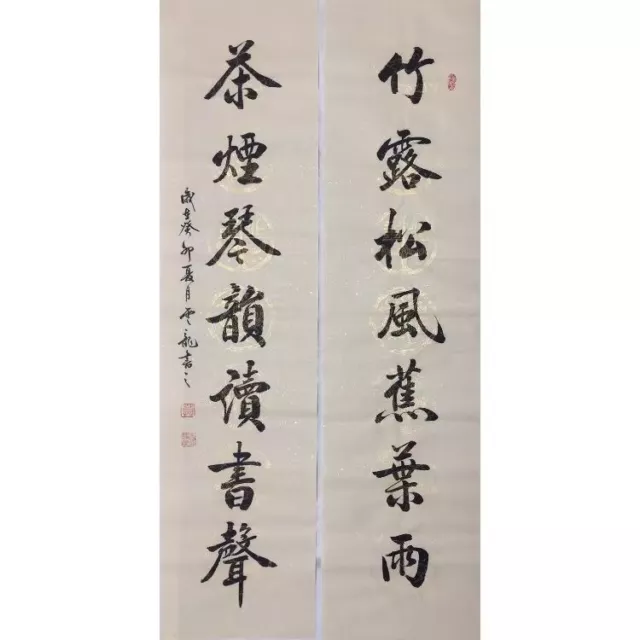 竹露松風蕉葉雨
茶煙琴韻讀書聲
歲在癸卯夏月雲龍書之